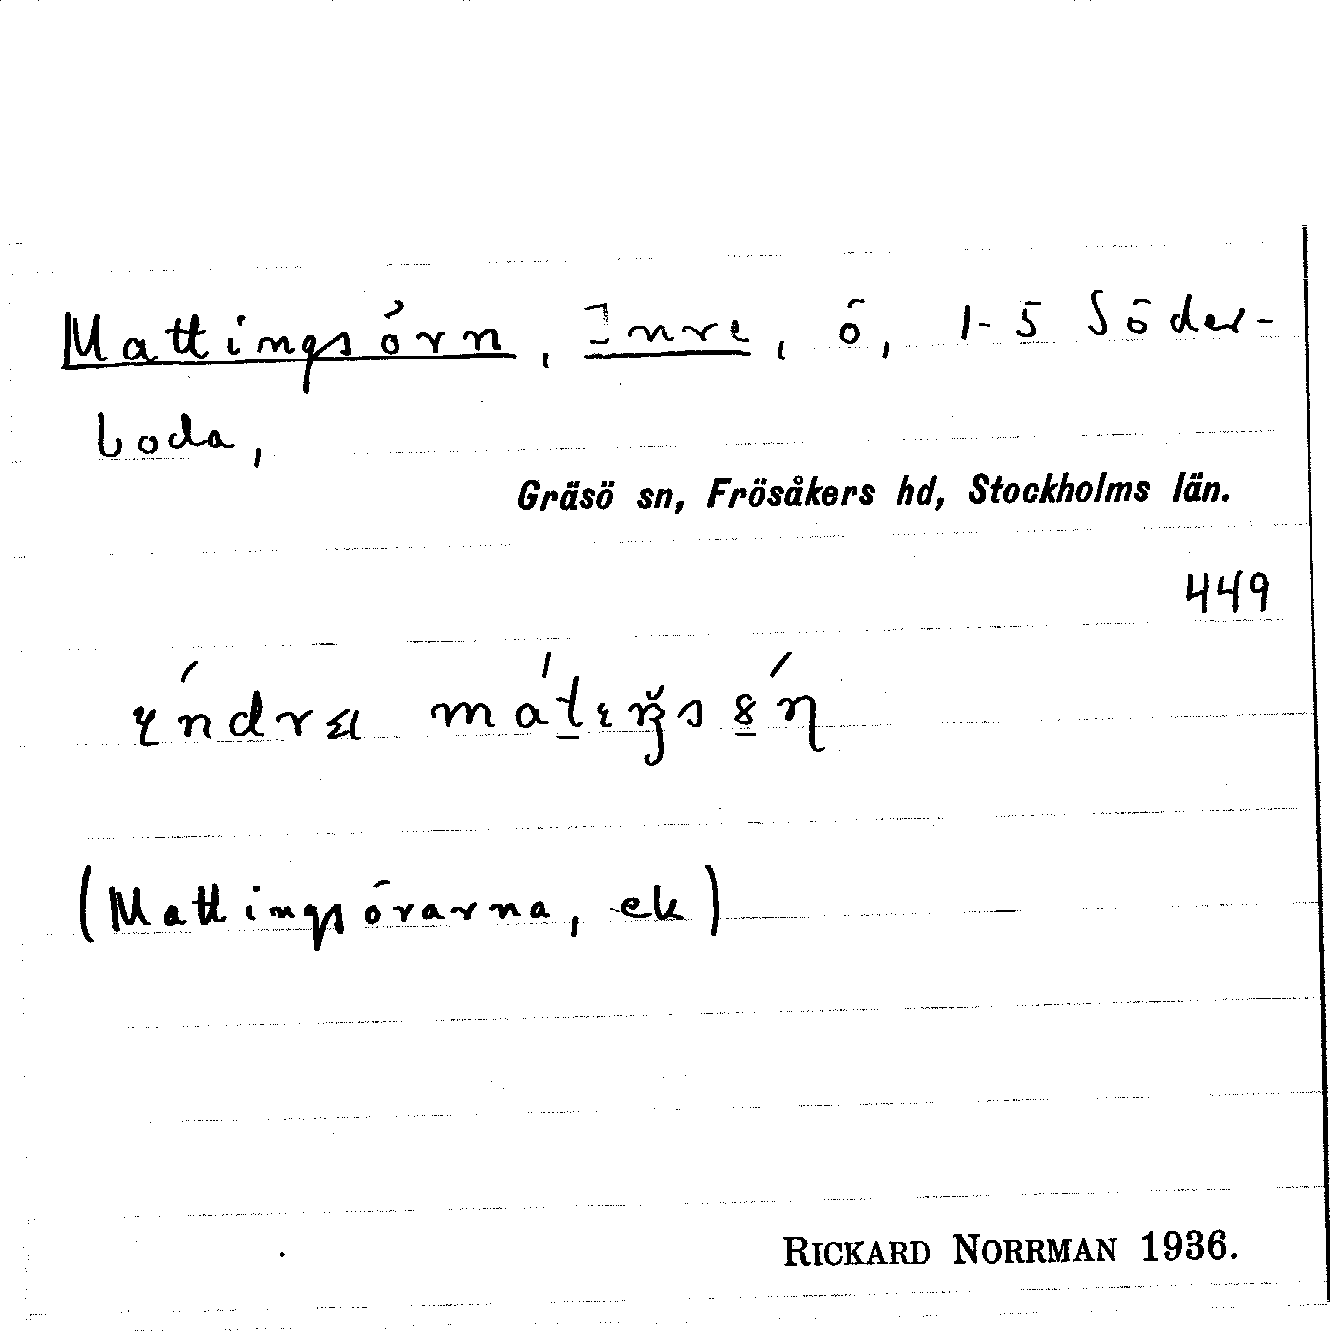 Mattingsörn, Inre, ö, 1-5 Söder-
boda,
Gräsö sn, Frösåkers hd, Stockholms län.
449
(Mattingsörarna, ek)
RICKARD NORRMAN 1936.